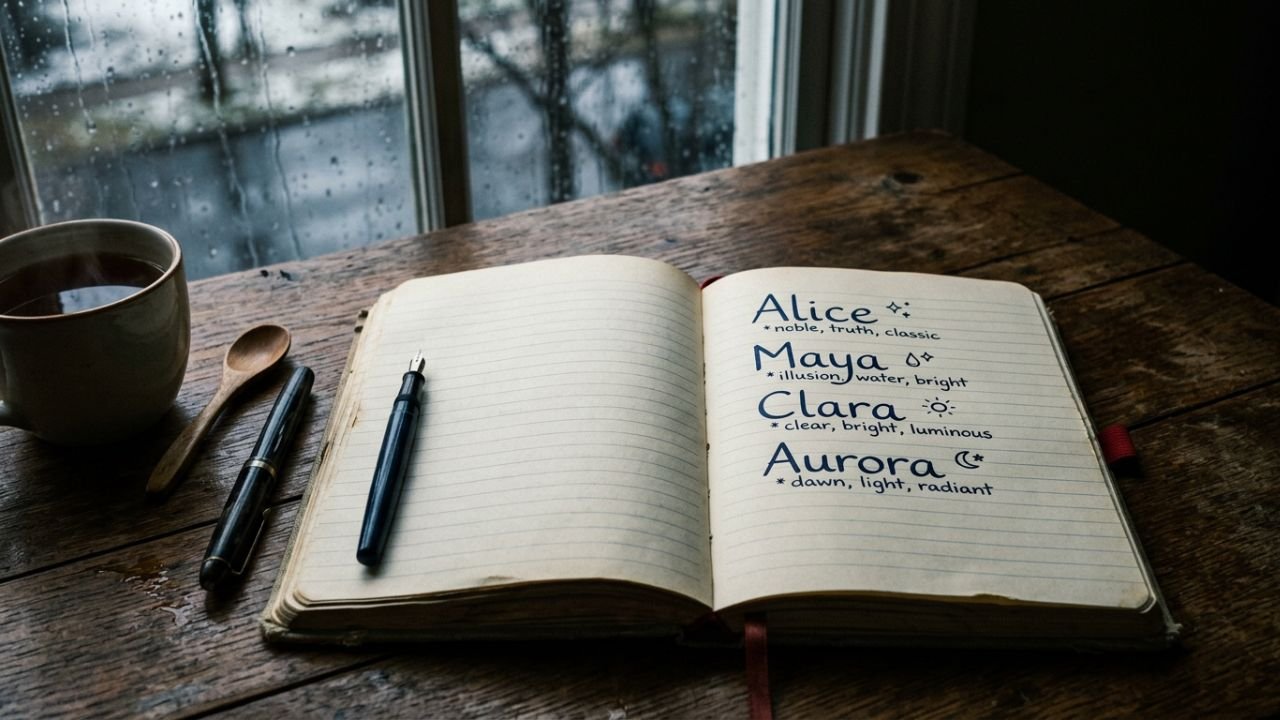 Alice
*noble, truth, classic
Maya
*illusion, water, bright
Clara
*clear, bright, luminous
Aurora
*dawn, light, radiant